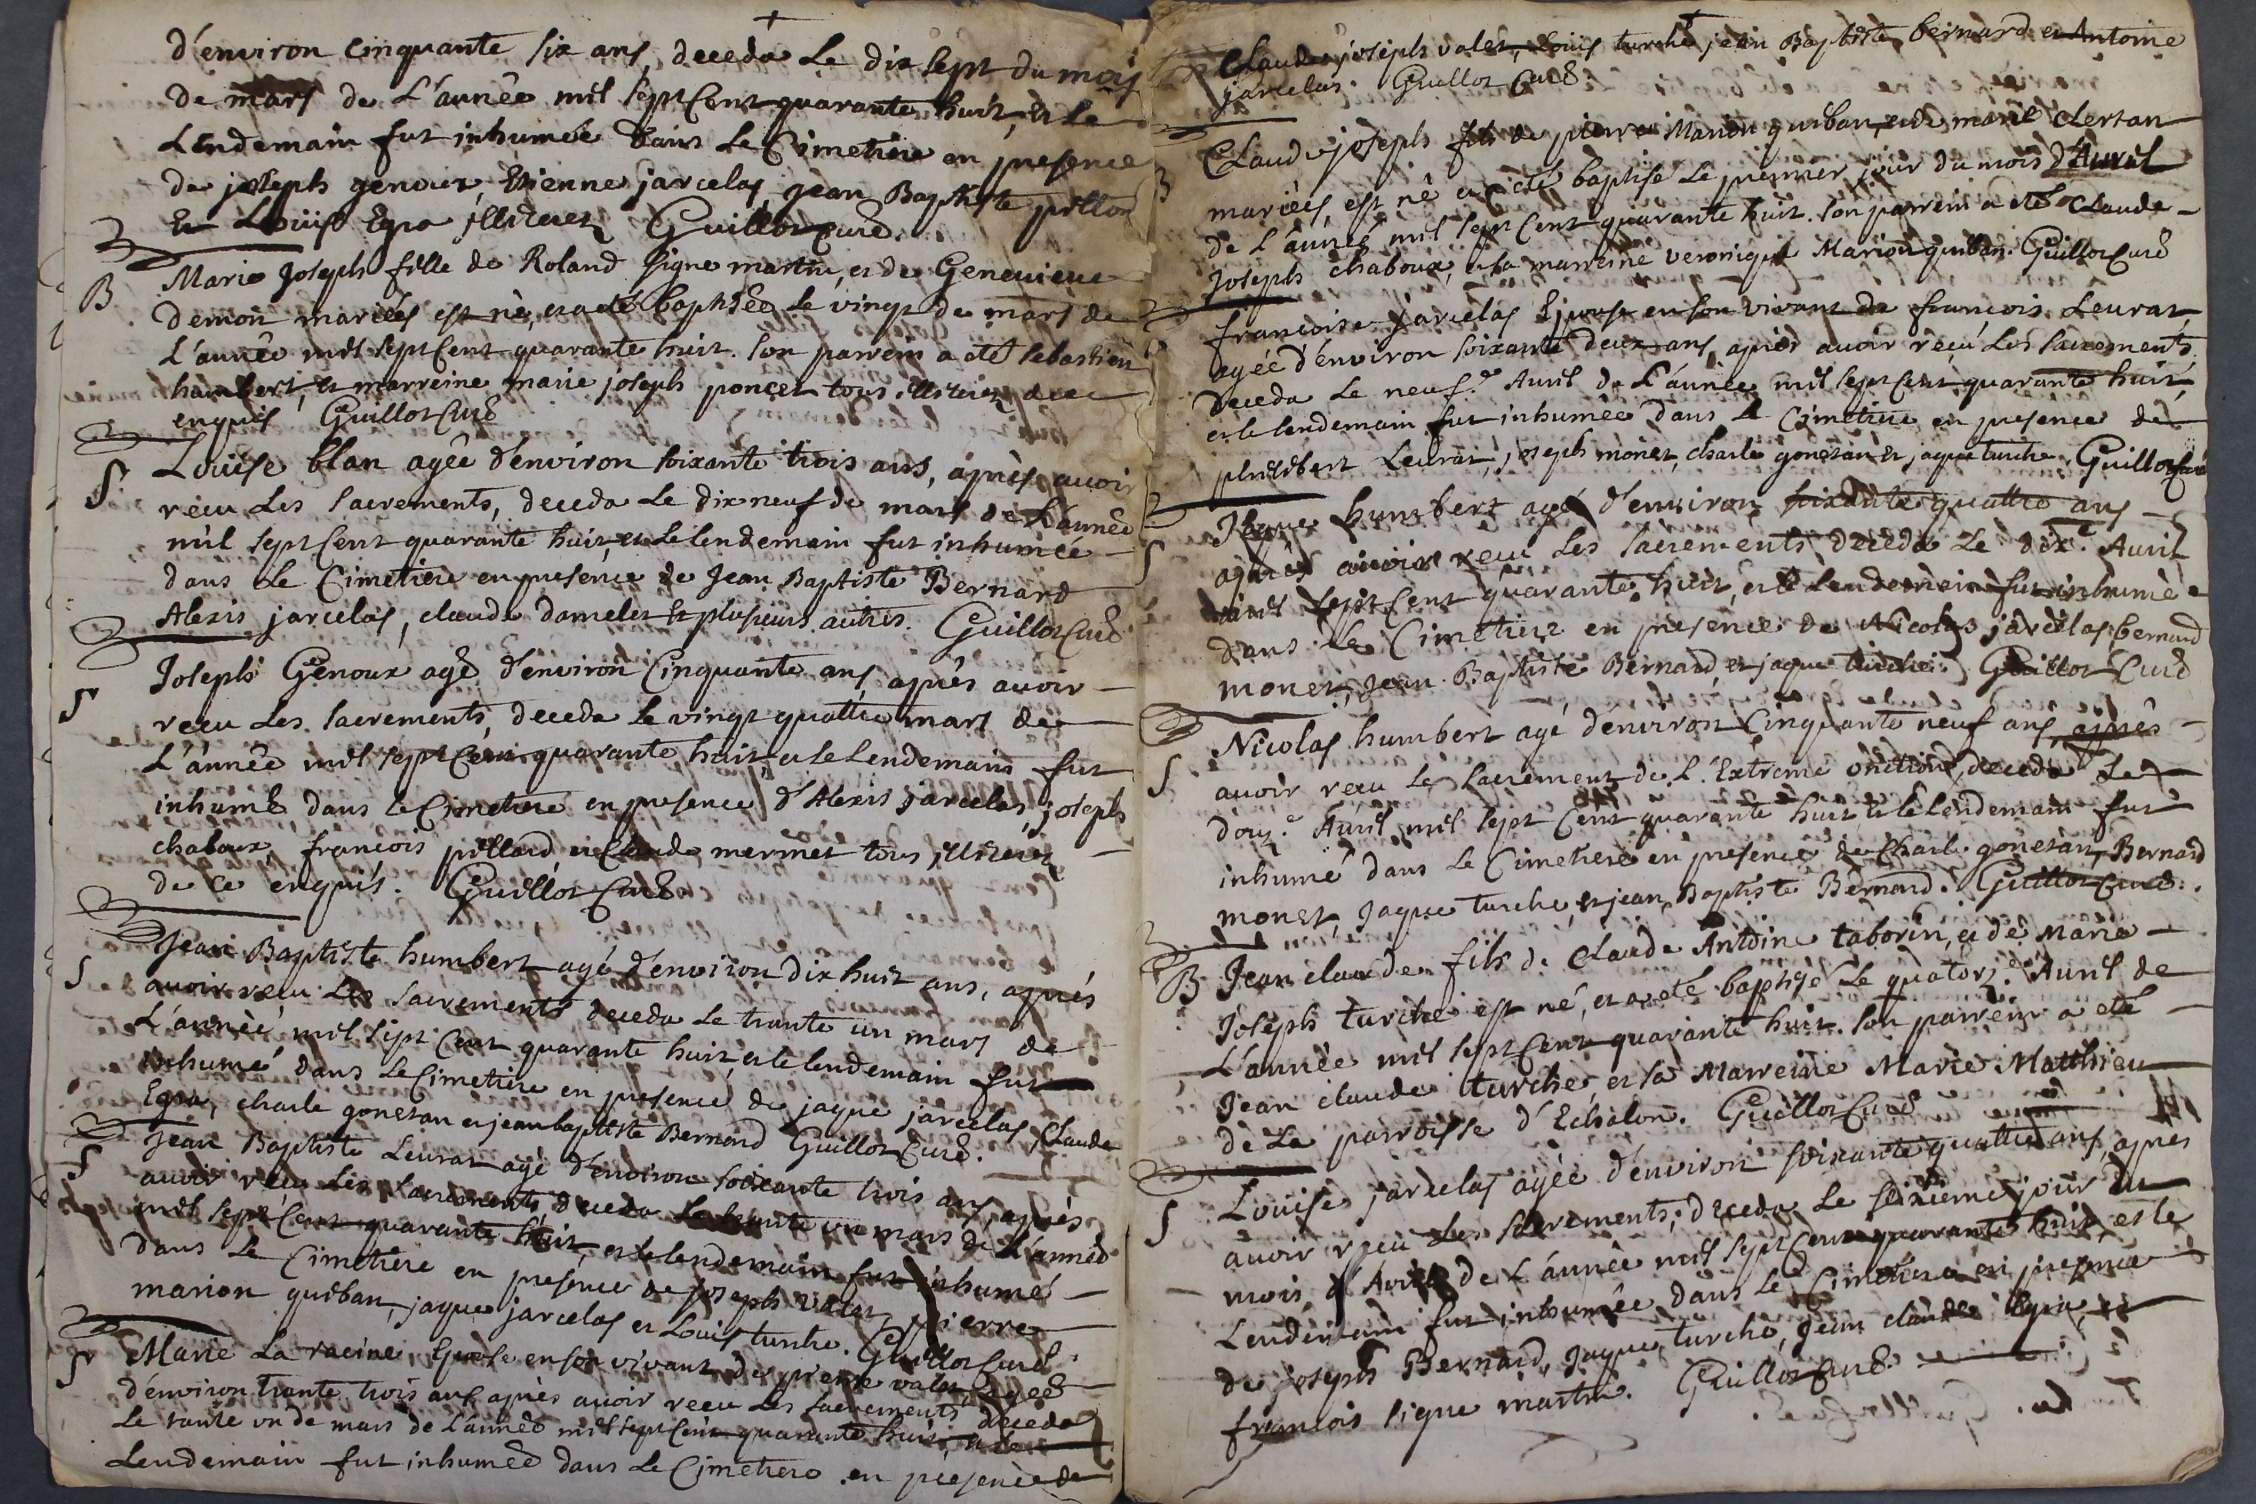 d'environ cinquante six ans, deceda Le dix sept du mois
de mars de L'année mil sept Cent quarante huit, et Le
Lendemain fut inhumée dans Le Cimetiere en presence
de joseph genoux, Etienne jarcelas jean Baptiste pillon
Et Louis Egra illiterez Guillot Curé.
B Marie Joseph fille de Roland Signe martin, et de Genevieve
demon mariés est né, et a eté baptisée le vingt de mars de
L'année mil sept Cent quarante huit. son parrein a eté sebastien
humbert, et marreine marie joseph poncet tous illiterez de ce
enquis Guillot Curé
S Louise blan agée d'environ soixante trois ans, après avoir
reçu Les sacrements, deceda Le dix neuf de mars de L'année
mil sept Cent quarante huit, et Le lendemain fut inhumée
dans Le Cimetiere en presence de Jean Baptiste Bernard
Alexis jarcelas, claude damelet Et plusieurs autres. Guillot Curé
S Joseph Genoux agé d'environ Cinquante ans, après avoir
reçu Les sacrements, deceda Le vingt quattre mars de
L'année mil sept Cent quarante huit, et Le Lendemain fut
inhumé dans Le Cimetiere en presence d'Alexis jarcelas, joseph
chaboux, francois pillard, et Claude mermet tous illiterez
de ce enquis. Guillot Curé
S Jean Baptiste humbert agé d'environ dix huit ans, après
avoir reçu Les sacrements deceda Le trante un mars de
L'année mil sept Cent quarante huit, et le lendemain fut
inhumé dans Le Cimetiere en presence de jaque jarcelas, Claude
Egra, charle gonetan et jean baptiste Bernard Guillot Curé.
S Jean Baptiste Leurat agé d'environ soixante trois ans, après
avoir reçu Les sacrements deceda Le trante un mars de L'année
mil sept Cent quarante huit, et le lendemain fut inhumé
dans Le Cimetiere en presence de joseph valet, pierre
marion guiban, jaque jarcelas et Louis turche. Guillot Curé
S Marie La racine Epouse en son vivant de pierre valet agée
d'environ trante trois ans après avoir reçu Les sacrements deceda
Le trante un de mars de L'année mil sept Cent quarante huit, et le
Lendemain fut inhumée dans Le Cimetiere en presence de
Claude joseph valet, Louis turche, jean Baptiste bernard et Antoine
jarcelas. Guillot Curé.
B Claude joseph fils de pierre Marion guiban, et de marie Clertan
mariés, est né et a eté baptisé Le premier jour du mois d'Avril
de L'année mil sept Cent quarante huit. son parrein a eté Claude
Joseph chaboux, et sa marreine veronique Marion guiban. Guillot Curé
francoise jarcelas Epouse en son vivant de francois Leurat,
agée d'environ soixante deux ans, après avoir reçu Les sacrements
deceda Le neuf.e Avril de L'année mil sept Cent quarante huit,
et le lendemain fut inhumée dans Le Cimetiere en presence de
philibert Leurat, joseph monet, charle gonetan et jaque turche. Guillot Curé
S Jaque humbert agé d'environ soixante quattre ans
après avoir reçu Les sacrements deceda Le dix.e Avril
mil sept Cent quarante huit, et Le Lendemain fut inhumé
dans Le Cimetiere en presence de Nicolas jarcelas, bernard
monet, jean Baptiste Bernard, et jaque turche. Guillot Curé
S Nicolas humbert agé d'environ Cinquante neuf ans, après
avoir reçu Le sacrement de L'Extreme onction, deceda Le
douz.e Avril mil sept Cent quarante huit et le Lendemain fut
inhumé dans Le Cimetiere en presence de Charle gonetan, Bernard
monet, Jaque turche, et jean Baptiste Bernard. Guillot Curé.
B Jean claude fils de Claude Antoine taborin, et de Marie
Joseph turche est né, et a eté baptisé Le quatorz.e Avril de
L'année mil sept Cent quarante huit. son parrein a eté
Jean claude turche, et sa Marreine Marie Matthieu
de La parroisse d'Echalon. Guillot Curé
S Louise jarcelas agée d'environ soixante quattre ans, apres
avoir reçu Les sacrements, deceda Le seixieme jour du
mois d'Avril de L'année mil sept Cent quarante huit, et le
Lendemain fut inhumée dans Le Cimetiere en presence
de joseph Bernard, Jaque turche, jean claude Egra, et
francois signe martin. Guillot Curé